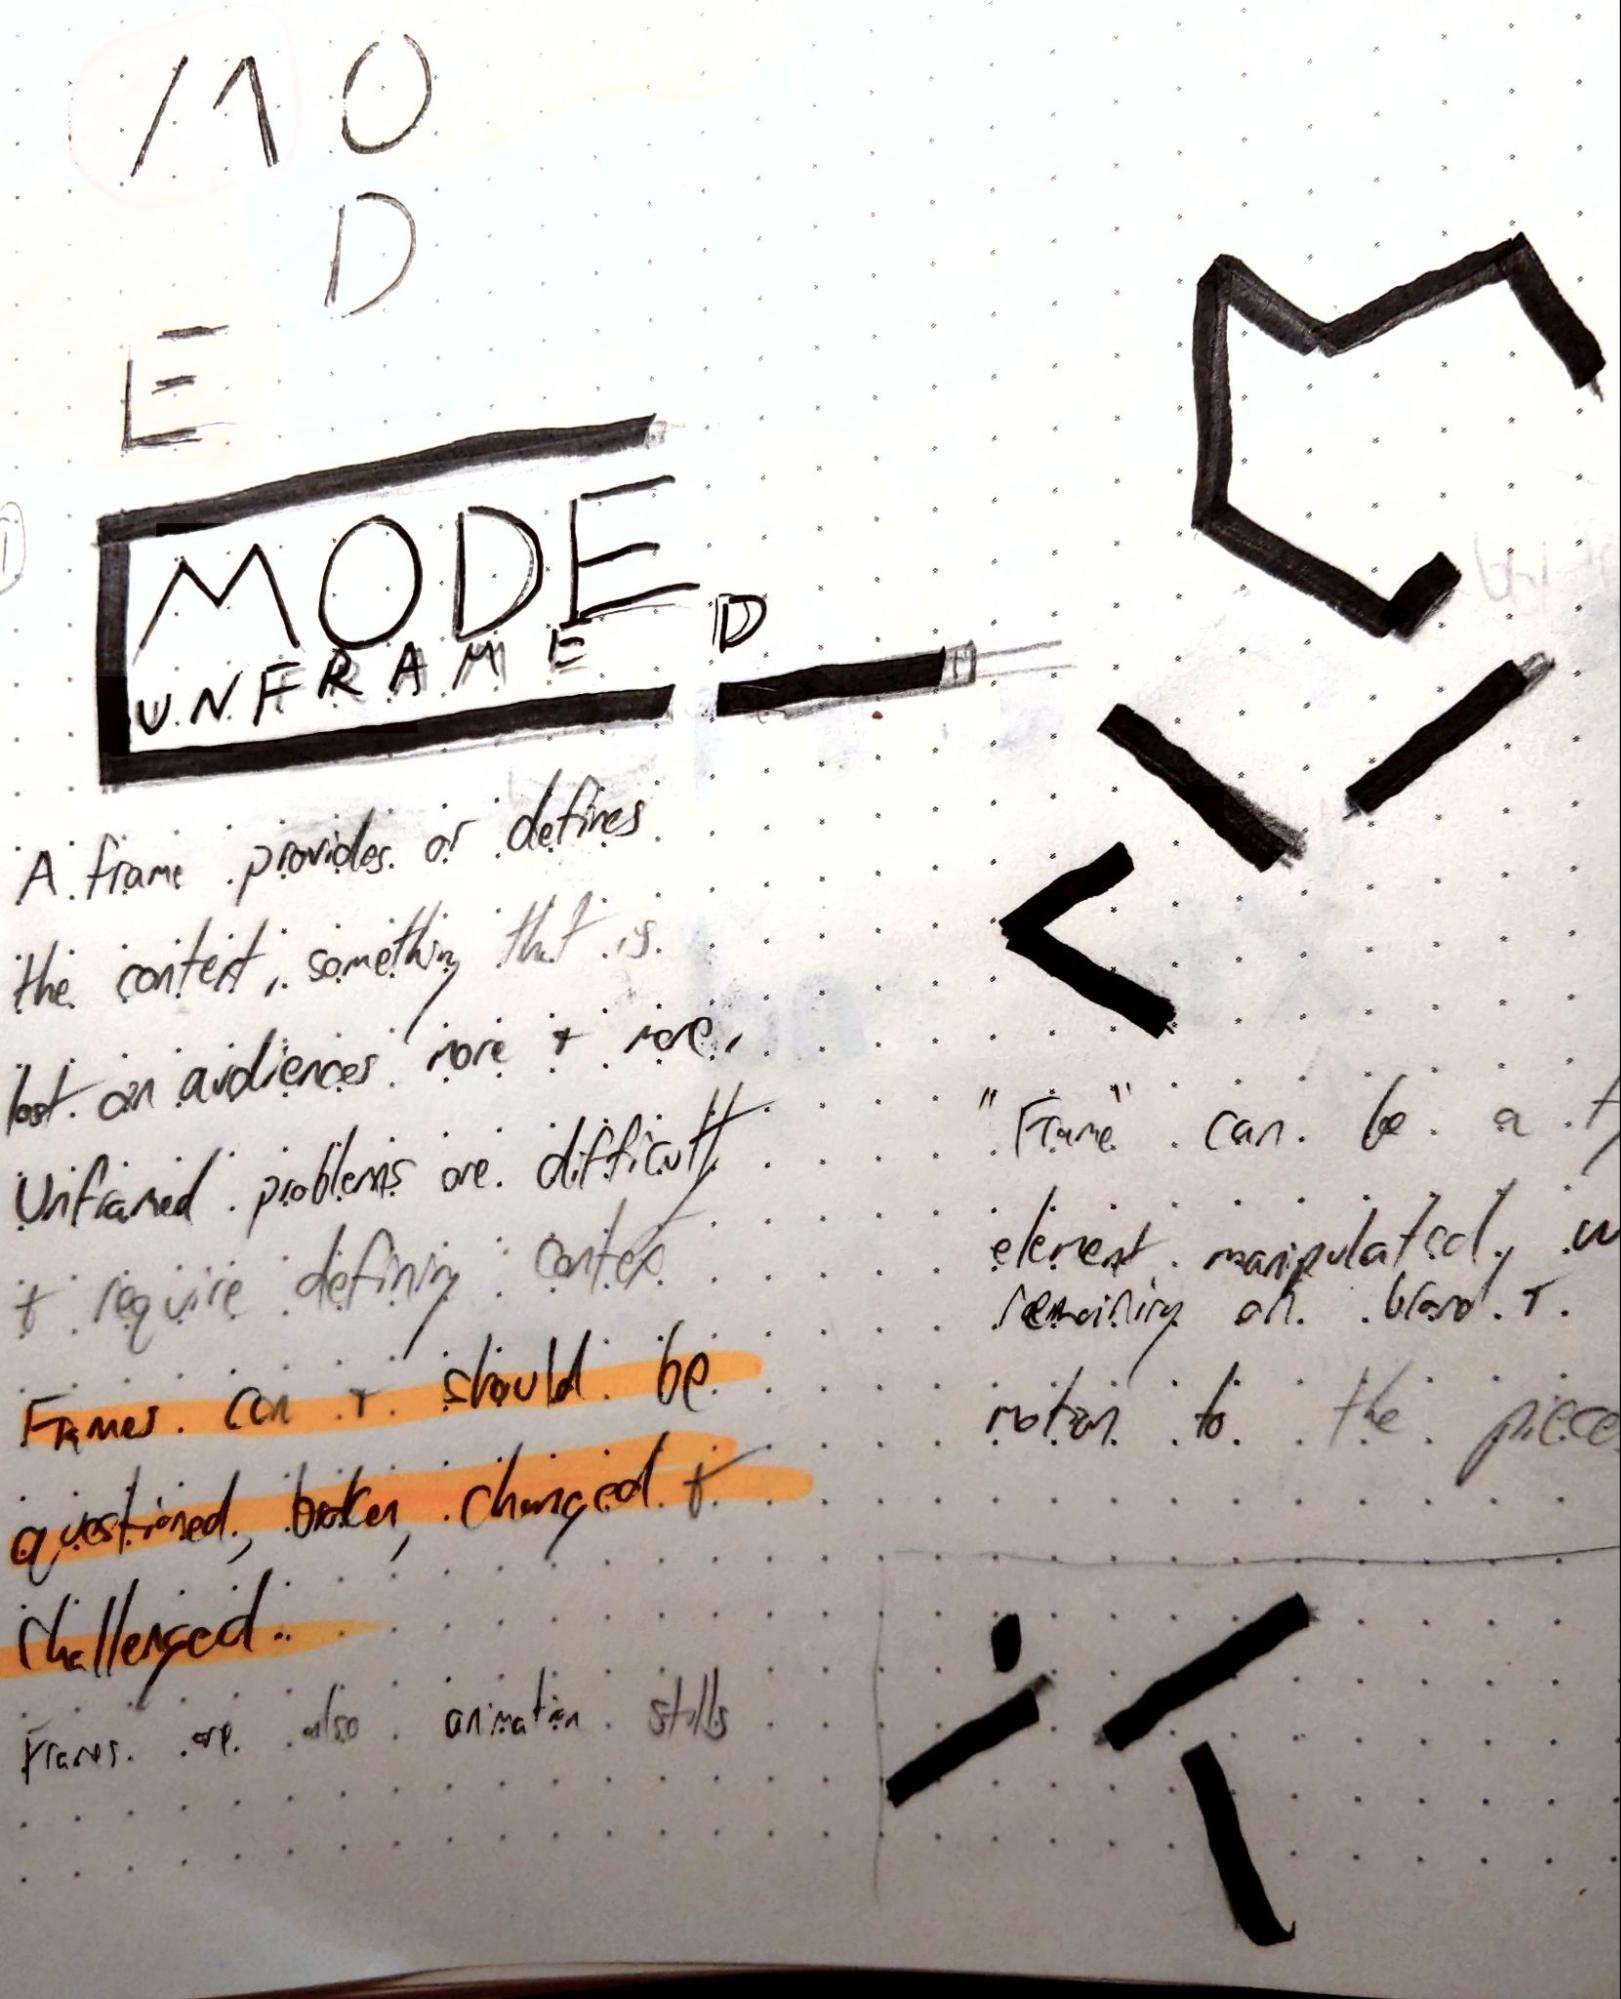 MO
D
E
MODE
UNFRAME D
A frame provides or defines
the context, something that is
lost on audiences more + more.
Unframed problems are difficult
+ require defining contex
Frames can + should be
questioned, broken, changed +
challenged..
Frames are also animation stills
"Frame" can be a
element manipulated,
remaining on brand +
motion to the piece